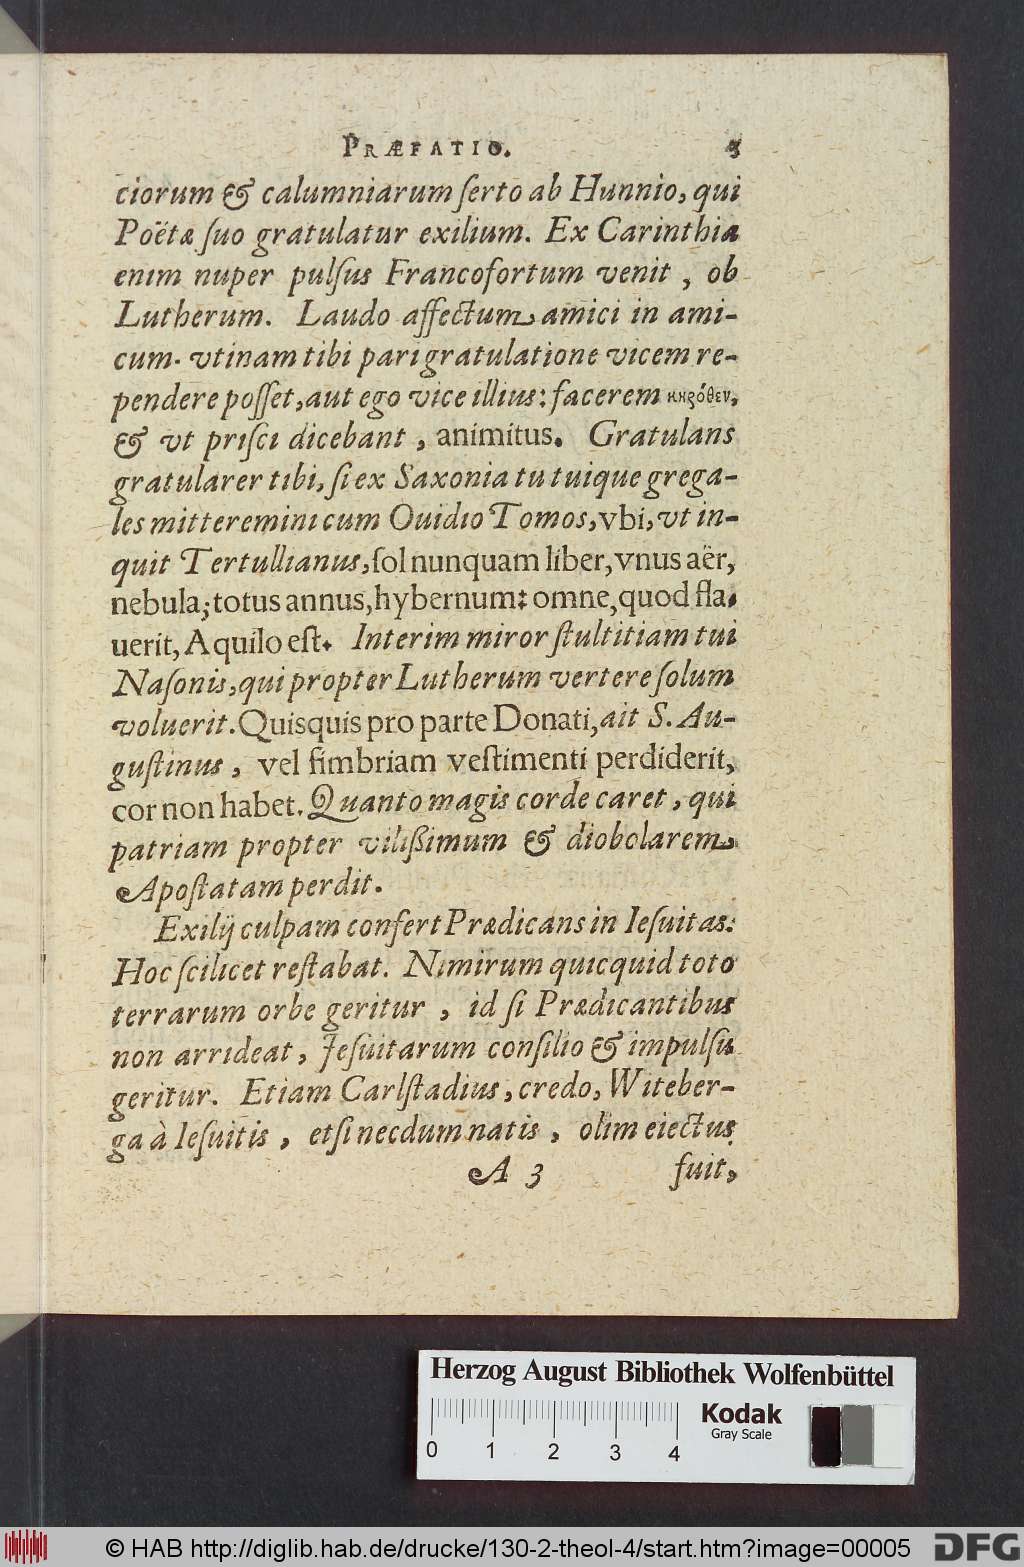 PRÆFATIO. 3
ciorum & calumniarum ſerto ab Hunnio, qui
Poëtæ ſuo gratulatur exilium. Ex Carinthia
enim nuper pulſus Francofortum venit, ob
Lutherum. Laudo affectum amici in ami-
cum. vtinam tibi pari gratulatione vicem re-
pendere poſſet, aut ego vice illius: facerem κηρόθεν,
& vt priſci dicebant, animitus. Gratulans
gratularer tibi, ſi ex Saxonia tu tuique grega-
les mitteremini cum Ouidio Tomos, vbi, vt in-
quit Tertullianus, ſol nunquam liber, vnus aër,
nebula; totus annus, hybernum: omne, quod fla-
uerit, Aquilo eſt. Interim miror ſtultitiam tui
Naſonis, qui propter Lutherum vertere ſolum
voluerit. Quisquis pro parte Donati, ait S. Au-
guſtinus, vel fimbriam veſtimenti perdiderit,
cor non habet. Quanto magis corde caret, qui
patriam propter viliſsimum & diobolarem
Apoſtatam perdit.
Exilij culpam confert Prædicans in Ieſuitas:
Hoc ſcilicet reſtabat. Nimirum quicquid toto
terrarum orbe geritur, id ſi Prædicantibus
non arrideat, Jeſuitarum conſilio & impulſu
geritur. Etiam Carlſtadius, credo, Witeber-
ga à Ieſuitis, etſi necdum natis, olim eiectus
A 3 fuit,
Herzog August Bibliothek Wolfenbüttel
Kodak
Gray Scale
0 1 2 3 4
© HAB http://diglib.hab.de/drucke/130-2-theol-4/start.htm?image=00005
DFG